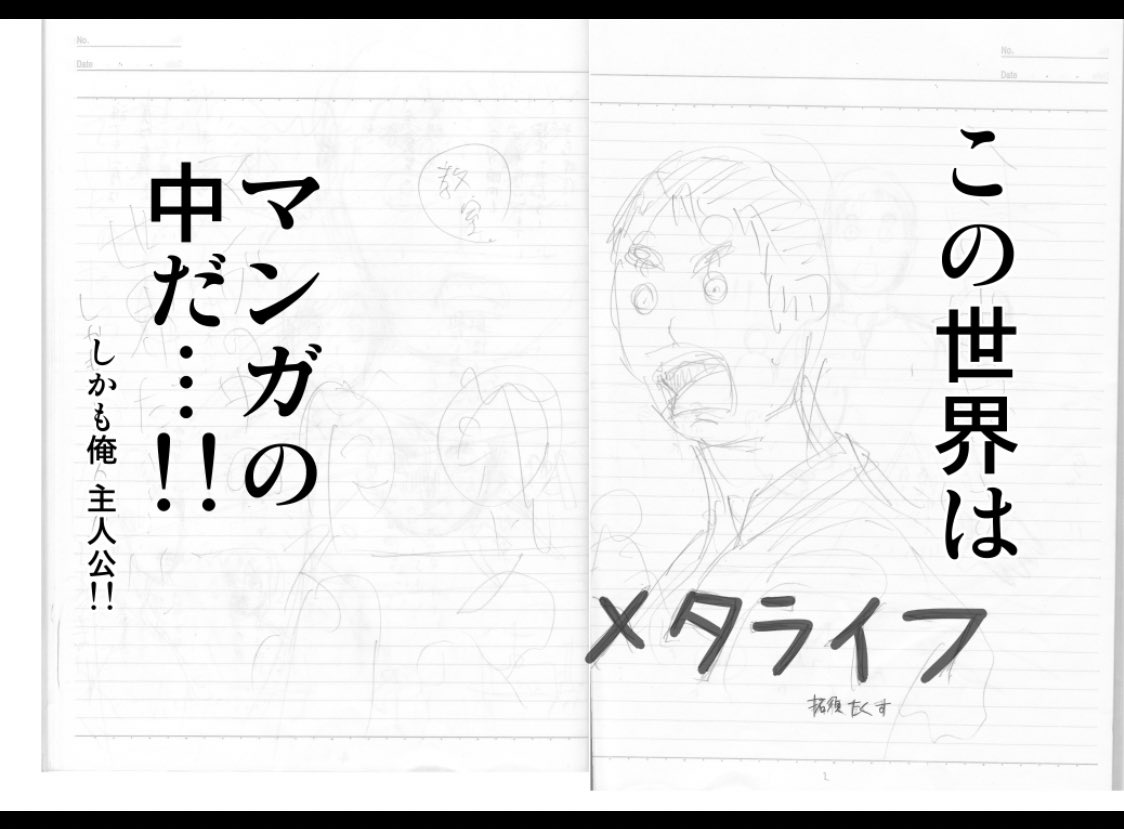 No.
Date
この世界は
メタライフ
拓須たくす
1
No.
Date
教室
マンガの
中だ…!!
しかも俺 主人公!!